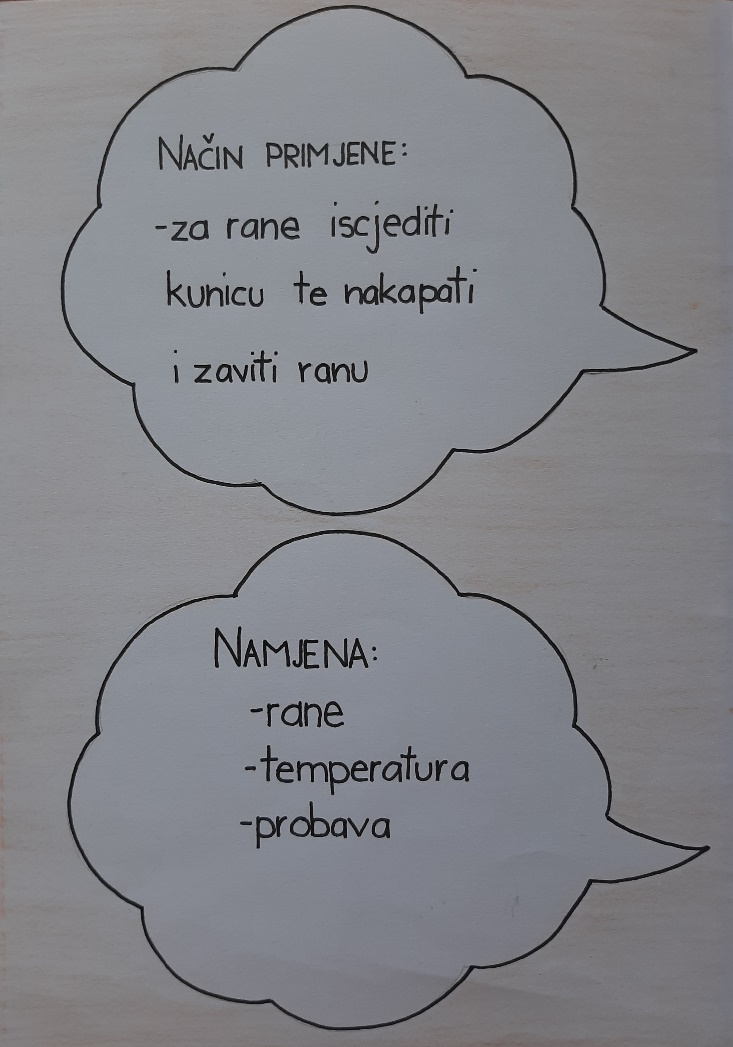 NAČIN PRIMJENE:
-za rane iscjediti
kunicu te nakapati
i zaviti ranu
NAMJENA:
-rane
-temperatura
-probava